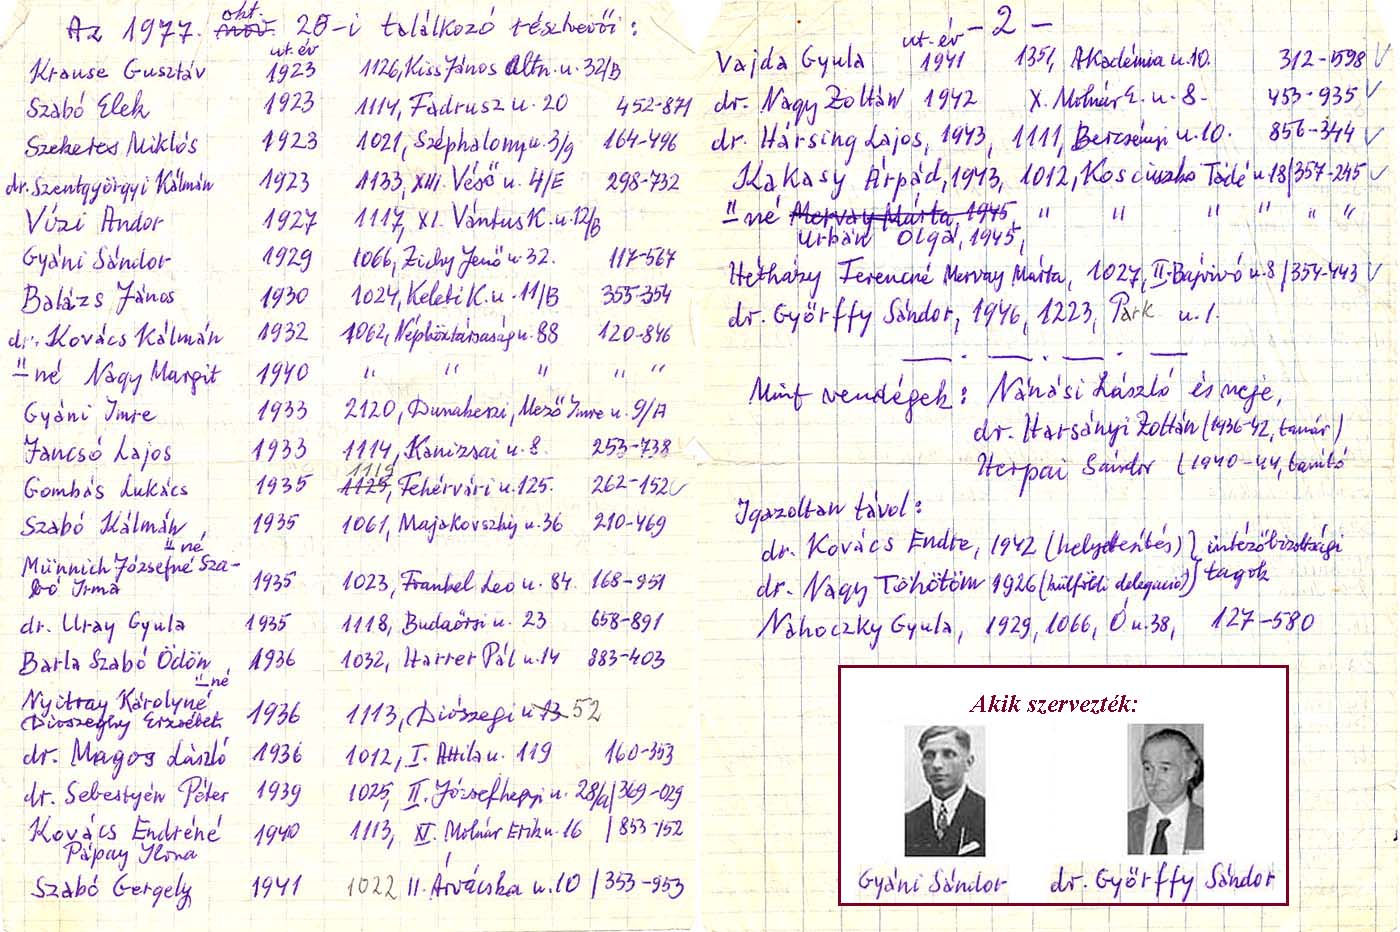 okt.
Az 1977. nov. 28-i találkozó résztvevői:
ut. év
Krause Gusztáv 1923 1126, Kiss János Altn. u. 32/B
Szabó Elek 1923 1114, Fadrusz u. 20 452-871
Szekeres Miklós 1923 1021, Széphalom u. 3/g 164-496
dr. Szentgyörgyi Kálmán 1923 1133, XIII. Véső u. 4/E 298-732
Vízi Andor 1927 1117, XI. Vántus K. u. 12/B
Gyáni Sándor 1929 1066, Zichy Jenő u. 32. 117-567
Balázs János 1930 1024, Keleti K. u. 11/B 353-354
dr. Kovács Kálmán 1932 1062, Népköztársaság u. 88 120-846
"né Nagy Margit 1940 " " " " "
Gyáni Imre 1933 2120, Dunakeszi, Mező Imre u. 9/A
Jancsó Lajos 1933 1114, Kanizsai u. 8. 253-738
1119
Gombás Lukács 1935 1125, Fehérvári u. 125. 262-152 ✓
Szabó Kálmán 1935 1061, Majakovszkij u. 36 210-469
"né
Münnich Józsefné Sza-
bó Irma 1935 1023, Frankel Leo u. 84. 168-951
dr. Uray Gyula 1935 1118, Budaörsi u. 23 658-891
Barla Szabó Ödön, 1936 1032, Harrer Pál u. 14 883-403
"né
Nyitray Károlyné
Diószeghy Erzsébet 1936 1113, Diószegi u. 73 52
dr. Magos László 1936 1012, I. Attila u. 119 160-353
dr. Sebestyén Péter 1939 1025, II. Józsefhegyi u. 28/a | 369-029
Kovács Endréné 1940 1113, XI. Molnár Erik u. 16 | 853-152
Pápay Ilona
Szabó Gergely 1941 1022 II. Árvácska u. 10 | 353-953
- 2 -
ut. év
Vajda Gyula 1941 1351, Akadémia u. 10. 312-598 ✓
dr. Nagy Zoltán 1942 X. Molnár E. u. 8. 453-935 ✓
dr. Hársing Lajos, 1943, 1111, Bercsényi u. 10. 856-344 ✓
Kakasy Árpád, 1943, 1012, Kosciuszko Tádé u. 18 | 357-245 ✓
"né Mervay Márta 1945, " " " " " "
Urbán Olga, 1945,
Hétházy Ferencné Mervay Márta, 1027, II. Bajvívó u. 8 | 354-443 ✓
dr. Győrffy Sándor, 1946, 1223, Park u. 1.
Mint vendégek: Nánási László és neje,
dr. Harsányi Zoltán (1936-42, tanár)
Herpai Sándor (1940-44, tanító
Igazoltan távol:
dr. Kovács Endre, 1942 (helyettesítés) } intézőbizottsági
dr. Nagy Töhötöm 1926 (külföldi delegáció) } tagok
Nahoczky Gyula, 1929, 1066, Ó u. 38, 127-580
Akik szervezték:
Gyáni Sándor dr. Győrffy Sándor